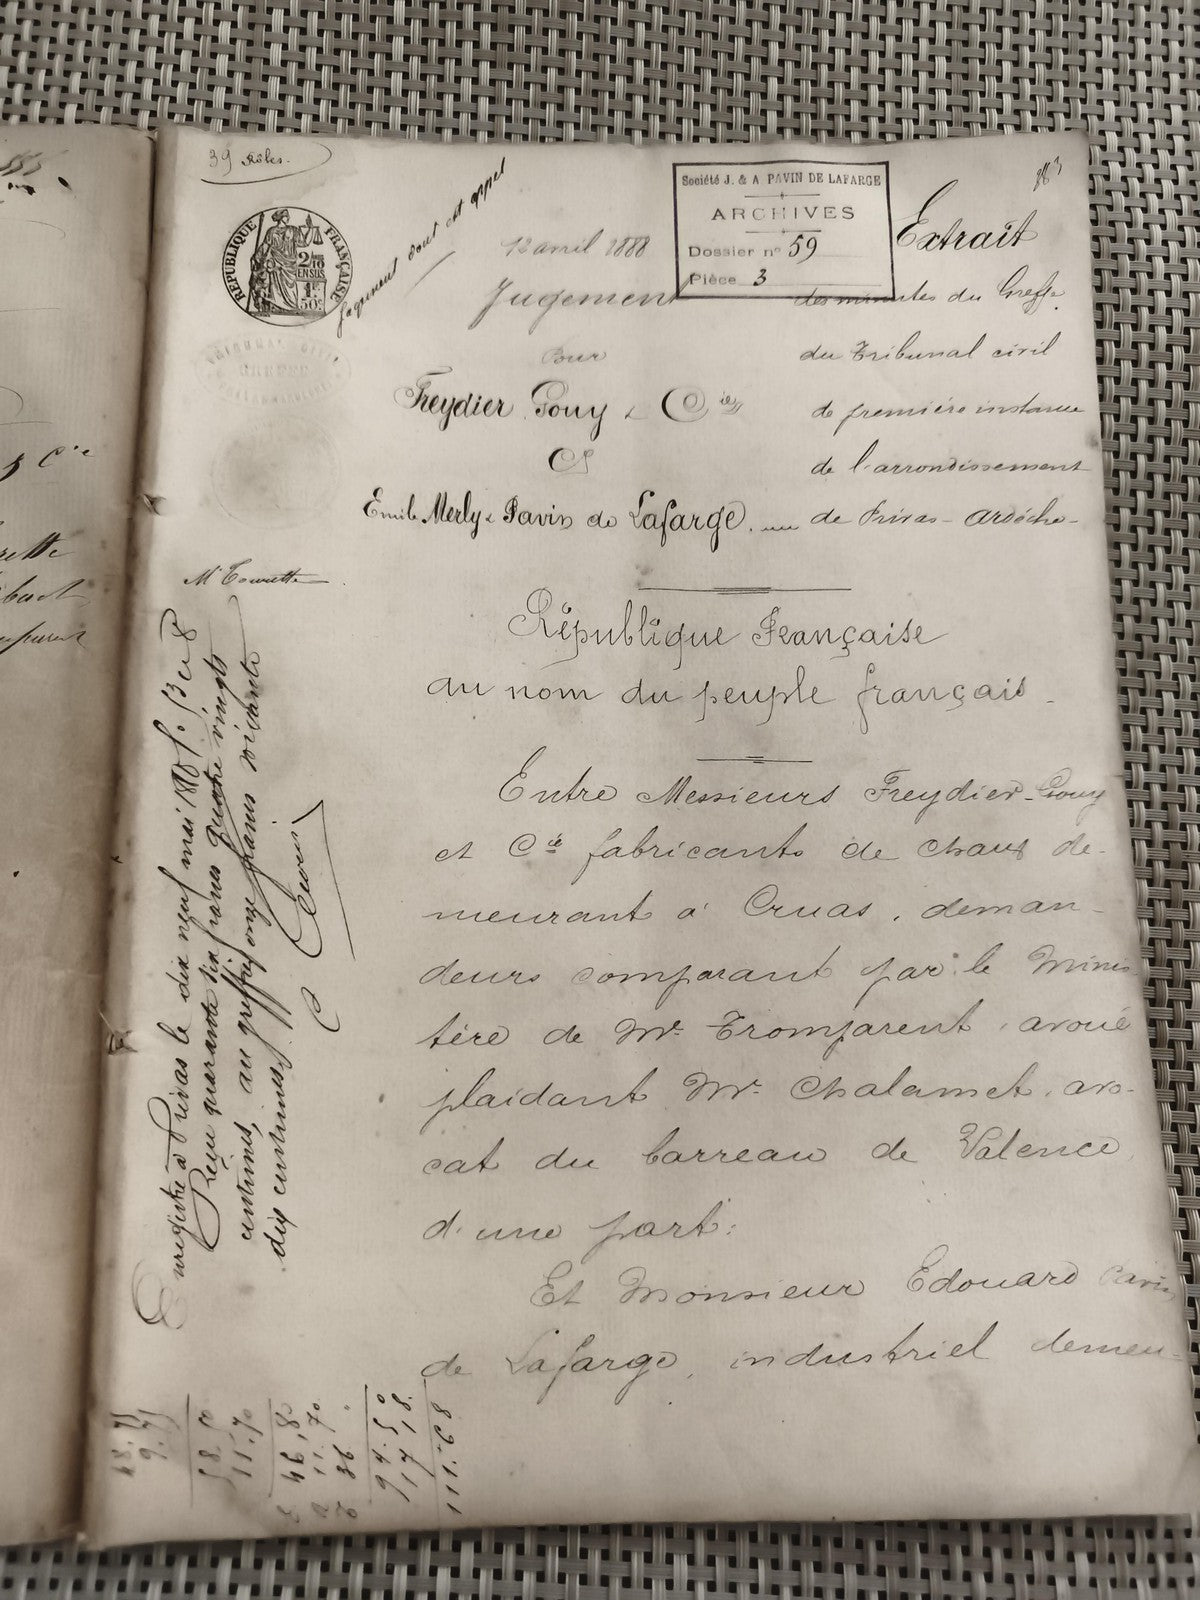 39 Rôles.
RÉPUBLIQUE FRANÇAISE
2/10
EN SUS
1F
50c
jugement dont est appel
Société J. & A PAVIN DE LAFARGE
ARCHIVES
Dossier n° 59
Pièce 3
12 avril 1888
Jugement
Pour
Freydier Gouy & Cie
Cs
Emile Merly & Pavin de Lafarge
Extrait
des minutes du Greffe
du Tribunal civil
de première instance
de l'arrondissement
de Privas - Ardèche -
TRIBUNAL CIVIL
GREFFE
Mᵉ Tourette
République Française
au nom du peuple français.
Entre Messieurs Freydier-Gouy
et Cie fabricants de chaux de-
meurant à Cruas, deman-
deurs comparant par le Minis-
tère de Me Tromparent, avoué
plaidant Me Chalamet, avo-
cat du barreau de Valence,
d'une part:
Et Monsieur Edouard Pavin
de Lafarge, industriel demeu-
Enregistré à Privas le dix neuf mai
Reçu quarante six francs quatre vingts
centimes, au greffe onze francs soixante
dix centimes
58.50
11.70
46.80
11.70
36
94.50
17.18
111.68